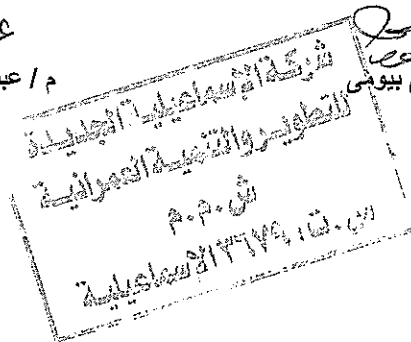 م / عب
م بيومى
شركة الإسماعيلية الجديدة
للتطوير والتنمية العمرانية
ش.م.م
س.ت: ٣٦٧٩ الإسماعيلية